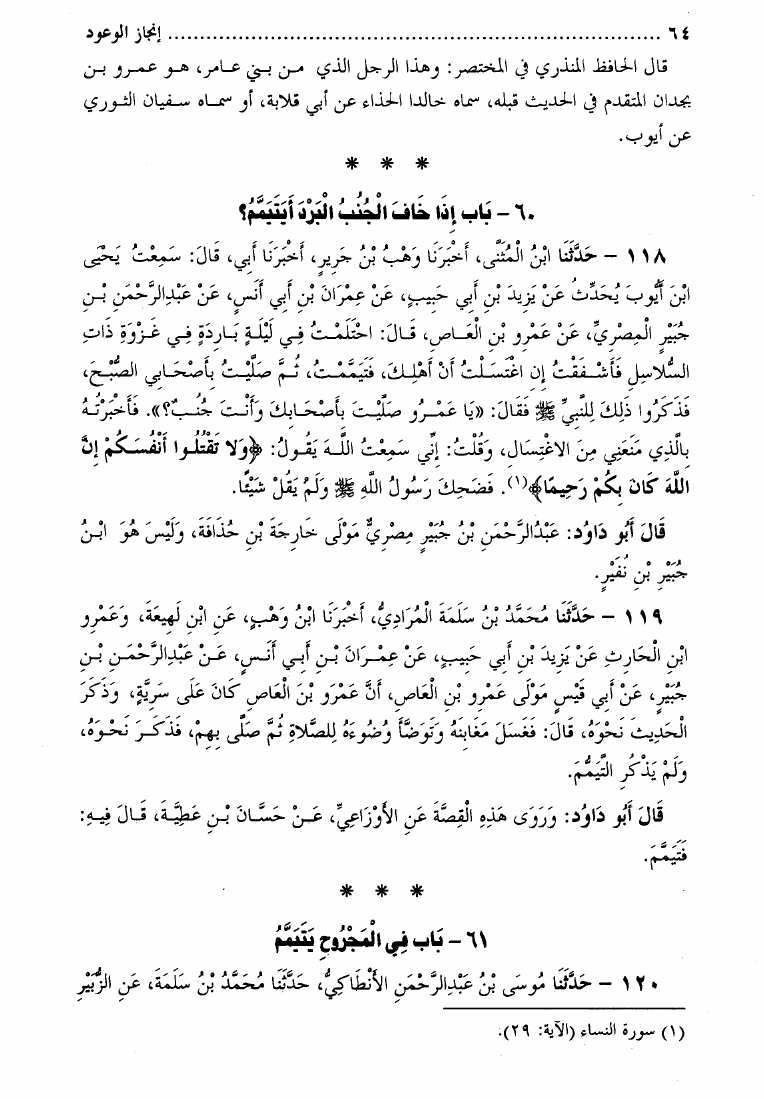 ٦٤ ........................................................................ إنجاز الوعود
قال الحافظ المنذري في المختصر: وهذا الرجل الذي من بني عامر، هو عمرو بن
بجدان المتقدم في الحديث قبله، سماه خالدا الحذاء عن أبي قلابة، أو سماه سفيان الثوري
عن أيوب.
* * *
٦٠ – بَاب إِذَا خَافَ الْجُنُبُ الْبَرْدَ أَيَتَيَمَّمُ؟
١١٨ – حَدَّثَنَا ابْنُ الْمُثَنَّى، أَخْبَرَنَا وَهْبُ بْنُ جَرِيرٍ، أَخْبَرَنَا أَبِي، قَالَ: سَمِعْتُ يَحْيَى
ابْنَ أَيُّوبَ يُحَدِّثُ عَنْ يَزِيدَ بْنِ أَبِي حَبِيبٍ، عَنْ عِمْرَانَ بْنِ أَبِي أَنَسٍ، عَنْ عَبْدِالرَّحْمَنِ بْنِ
جُبَيْرٍ الْمِصْرِيِّ، عَنْ عَمْرِو بْنِ الْعَاصِ، قَالَ: احْتَلَمْتُ فِي لَيْلَةٍ بَارِدَةٍ فِي غَزْوَةِ ذَاتِ
السُّلَاسِلِ فَأَشْفَقْتُ إِنِ اغْتَسَلْتُ أَنْ أَهْلِكَ، فَتَيَمَّمْتُ، ثُمَّ صَلَّيْتُ بِأَصْحَابِي الصُّبْحَ،
فَذَكَرُوا ذَلِكَ لِلنَّبِيِّ ﷺ فَقَالَ: «يَا عَمْرُو صَلَّيْتَ بِأَصْحَابِكَ وَأَنْتَ جُنُبٌ؟». فَأَخْبَرْتُهُ
بِالَّذِي مَنَعَنِي مِنَ الاغْتِسَالِ، وَقُلْتُ: إِنِّي سَمِعْتُ اللَّهَ يَقُولُ: ﴿وَلا تَقْتُلُوا أَنْفُسَكُمْ إِنَّ
اللَّهَ كَانَ بِكُمْ رَحِيمًا﴾(١). فَضَحِكَ رَسُولُ اللَّهِ ﷺ وَلَمْ يَقُلْ شَيْئًا.
قَالَ أَبُو دَاوُد: عَبْدُالرَّحْمَنِ بْنُ جُبَيْرٍ مِصْرِيٌّ مَوْلَى خَارِجَةَ بْنِ حُذَافَةَ، وَلَيْسَ هُوَ ابْنُ
جُبَيْرِ بْنِ نُفَيْرٍ.
١١٩ – حَدَّثَنَا مُحَمَّدُ بْنُ سَلَمَةَ الْمُرَادِيُّ، أَخْبَرَنَا ابْنُ وَهْبٍ، عَنِ ابْنِ لَهِيعَةَ، وَعَمْرِو
ابْنِ الْحَارِثِ عَنْ يَزِيدَ بْنِ أَبِي حَبِيبٍ، عَنْ عِمْرَانَ بْنِ أَبِي أَنَسٍ، عَنْ عَبْدِالرَّحْمَنِ بْنِ
جُبَيْرٍ، عَنْ أَبِي قَيْسٍ مَوْلَى عَمْرِو بْنِ الْعَاصِ، أَنَّ عَمْرَو بْنَ الْعَاصِ كَانَ عَلَى سَرِيَّةٍ، وَذَكَرَ
الْحَدِيثَ نَحْوَهُ، قَالَ: فَغَسَلَ مَغَابِنَهُ وَتَوَضَّأَ وُضُوءَهُ لِلصَّلاةِ ثُمَّ صَلَّى بِهِمْ، فَذَكَرَ نَحْوَهُ،
وَلَمْ يَذْكُرِ التَّيَمُّمَ.
قَالَ أَبُو دَاوُد: وَرَوَى هَذِهِ الْقِصَّةَ عَنِ الأَوْزَاعِيِّ، عَنْ حَسَّانَ بْنِ عَطِيَّةَ، قَالَ فِيهِ:
فَتَيَمَّمَ.
* * *
٦١ – بَاب فِي الْمَجْرُوحِ يَتَيَمَّمُ
١٢٠ – حَدَّثَنَا مُوسَى بْنُ عَبْدِالرَّحْمَنِ الأَنْطَاكِيُّ، حَدَّثَنَا مُحَمَّدُ بْنُ سَلَمَةَ، عَنِ الزُّبَيْرِ
(١) سورة النساء (الآية: ٢٩).